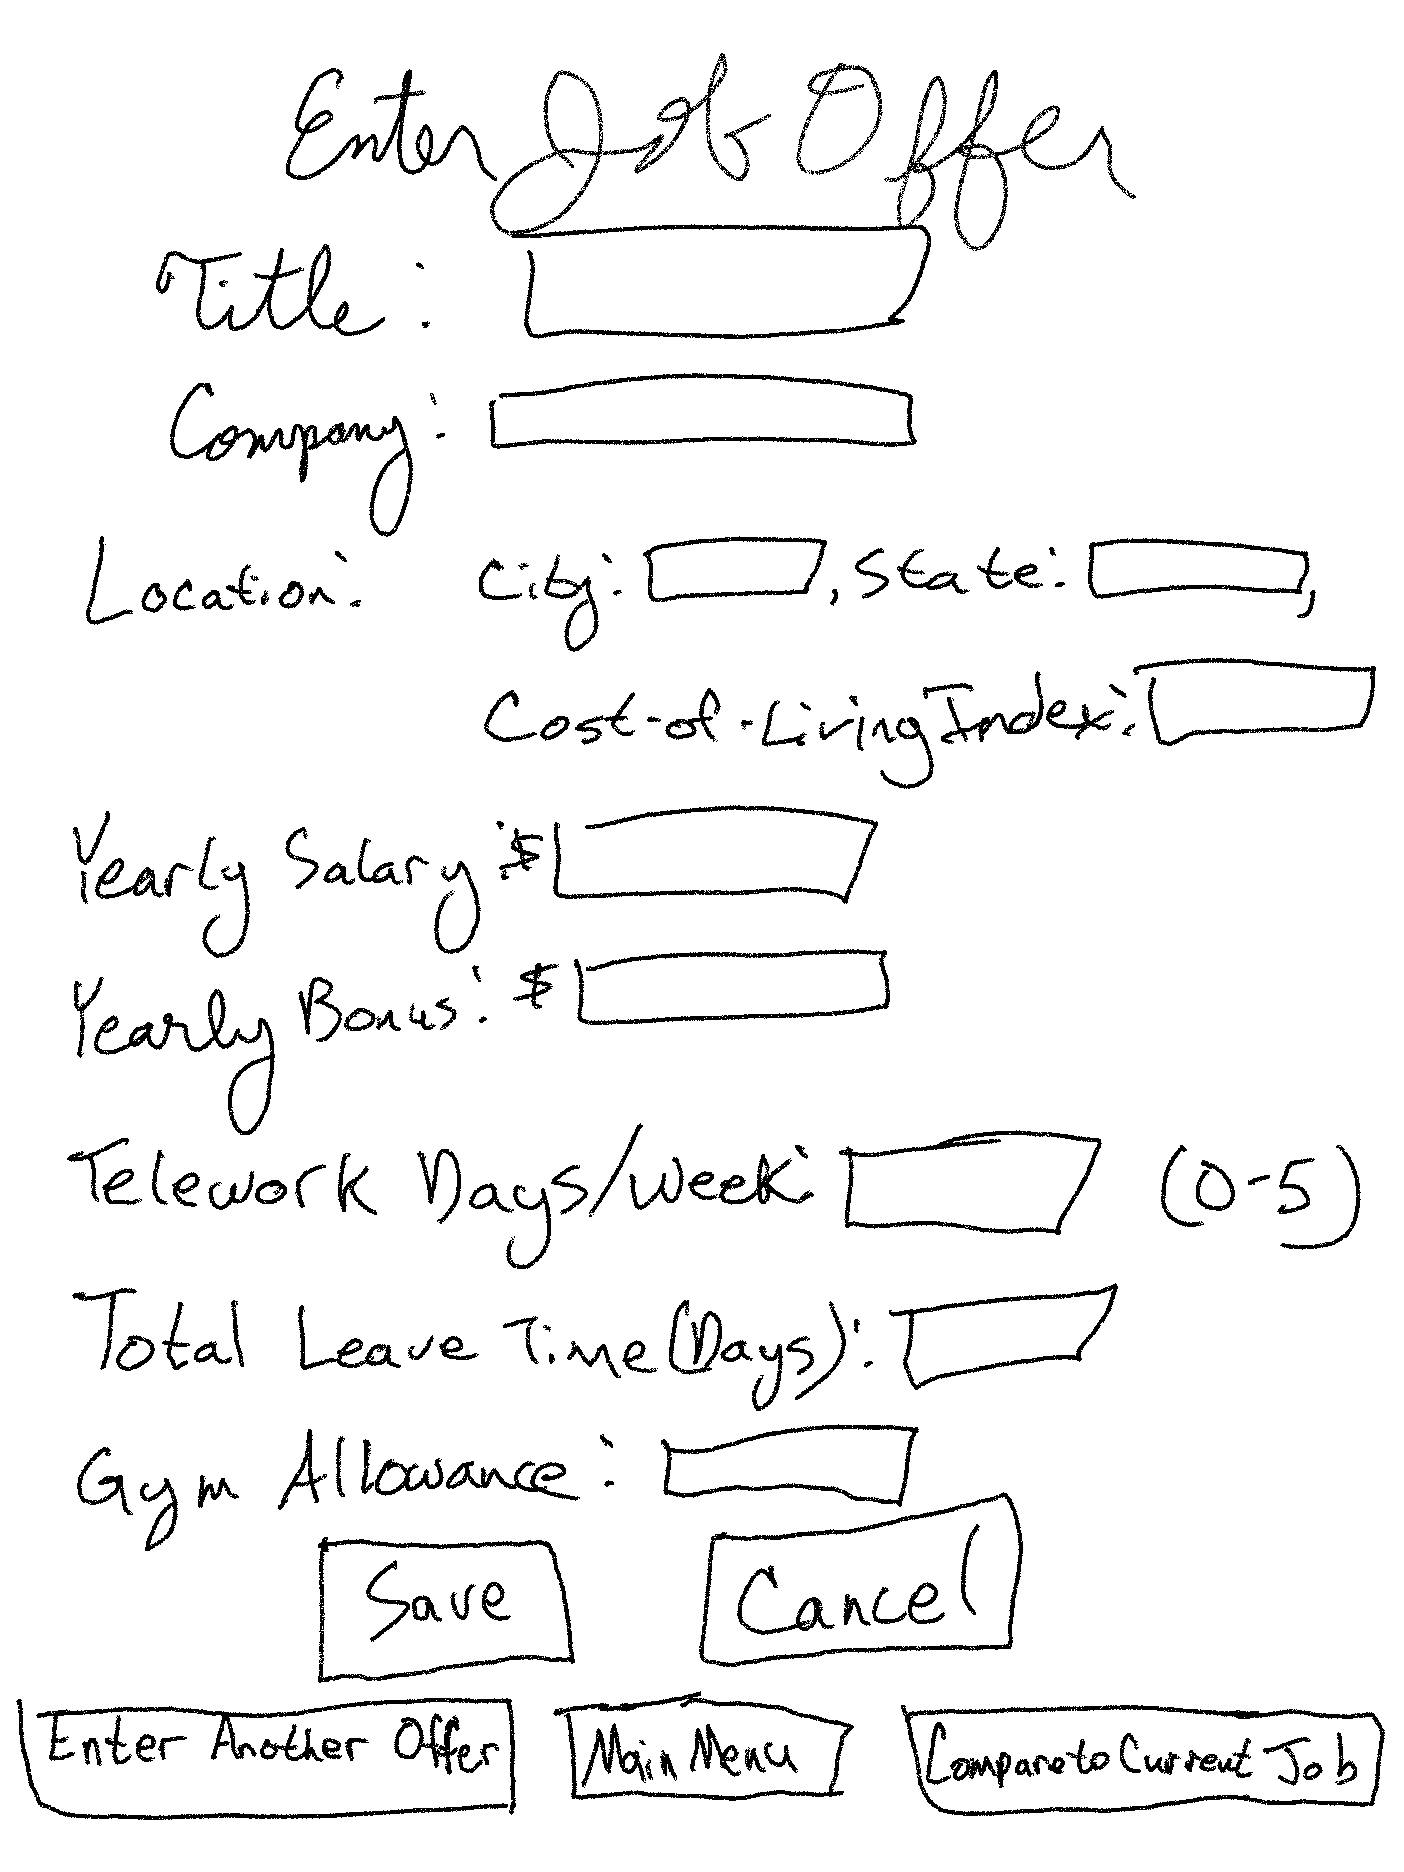 Enter Job Offer
Title:
Company:
Location: City: , State: ,
Cost-of-Living Index:
Yearly Salary: $
Yearly Bonus: $
Telework Days/Week: (0-5)
Total Leave Time (Days):
Gym Allowance:
Save Cancel
Enter Another Offer Main Menu Compare to Current Job